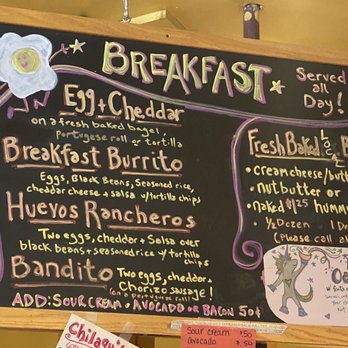 BREAKFAST
Served
all
Day!
Egg + Cheddar
on a fresh baked bagel,
portuguese roll or tortilla
Breakfast Burrito
Eggs, Black Beans, Seasoned rice,
cheddar cheese + salsa w/tortilla chips
Huevos Rancheros
Two eggs, cheddar + Salsa over
black beans + seasoned rice w/tortilla
chips
Bandito
Two eggs, cheddar +
Chorizo sausage!
(on a Portuguese roll!)
ADD: SOUR CREAM + AVOCADO OR BACON 50¢
Fresh Baked
• cream cheese/butt
• nut butter or
• naked $1.25 humm
• ½ Dozen
(Please call a
Sour cream $50
Avocado $.50